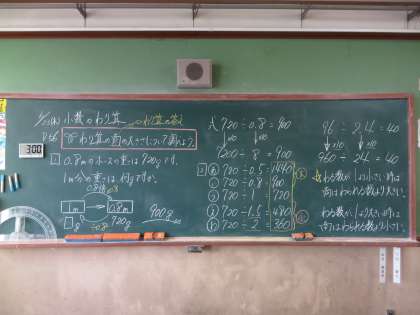 小数のわり算
P56
わり算の商の大きさについて調べよう。
3:00
1 0.8mのホースの重さは720gです。
1m分の重さは何gですか。
0.8倍
1m
0.8m
□g
÷0.8
720g
900g
式 720÷0.8=900
↓×10 ↓×10
7200÷8=900
2 あ 720÷0.5=1440
い 720÷0.8=900
う 720÷1=720
え 720÷1.5=480
お 720÷2=360
96÷2.4=40
↓×10 ↓×10
960÷24=40
わる数が、1より小さい時は
商はわられる数より大きい。
わる数が、1より大きい時は
商はわられる数より小さい。